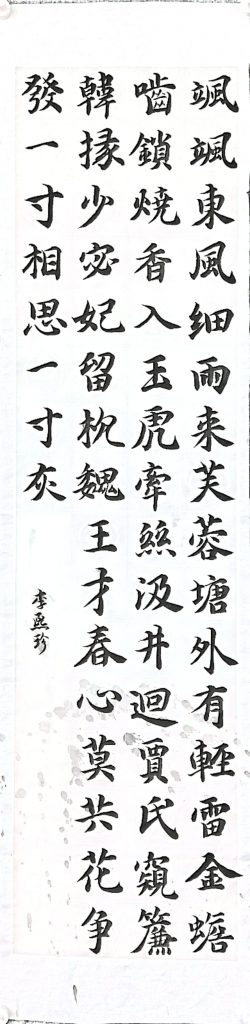 颯颯東風細雨来芙蓉塘外有軽雷金蟾
嚙鎖燒香入玉虎牽絲汲井迴賈氏窺簾
韓掾少宓妃留枕魏王才春心莫共花争
發一寸相思一寸灰
李珍